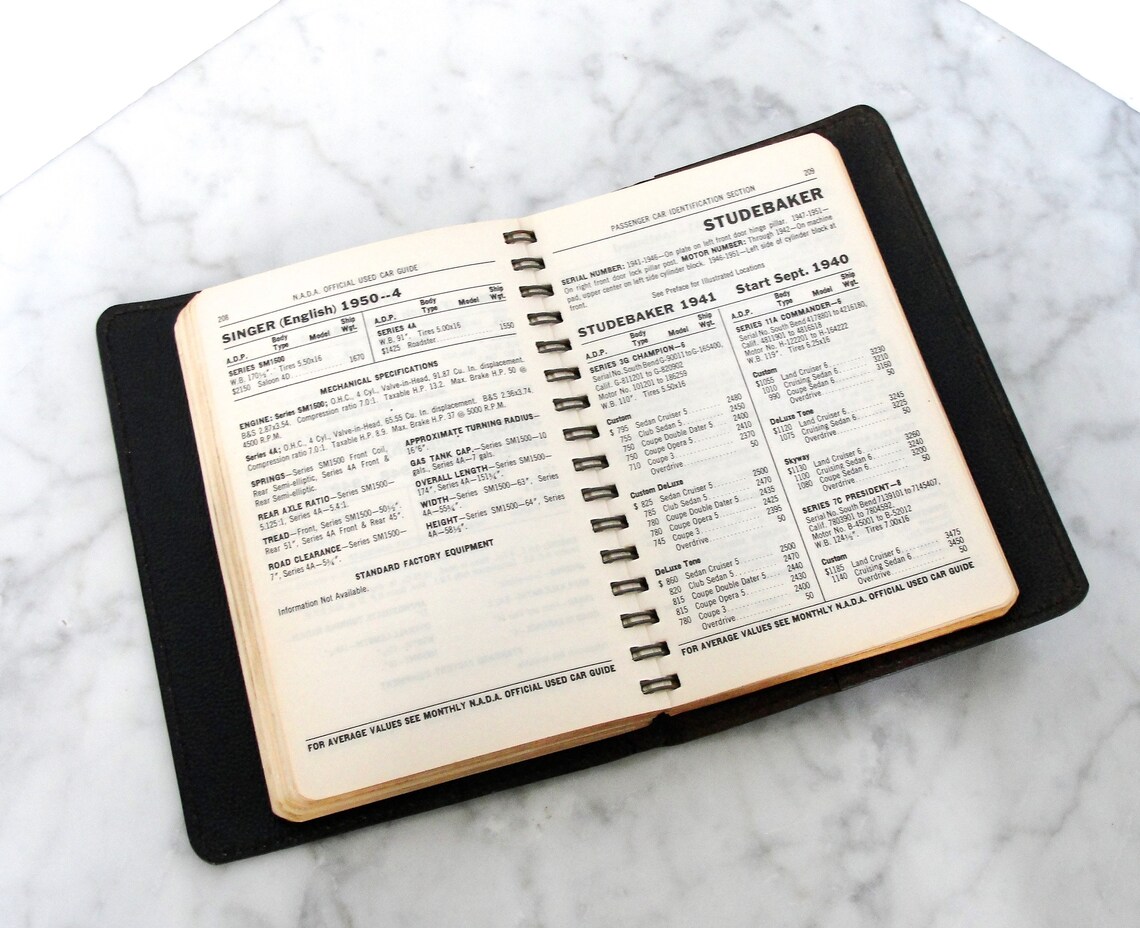 208
N.A.D.A. OFFICIAL USED CAR GUIDE
SINGER (English) 1950--4
A.D.P. Body Type Model Ship Wgt.
SERIES SM1500
W.B. 170½". Tires 5.50x16
$2150 Saloon 4D 1670
A.D.P. Body Type Model Ship Wgt.
SERIES 4A
W.B. 91". Tires 5.00x16
$1425 Roadster 1550
MECHANICAL SPECIFICATIONS
ENGINE: Series SM1500; O.H.C., 4 Cyl., Valve-in-Head, 91.87 Cu. In. displacement.
B&S 2.87x3.54. Compression ratio 7.0:1. Taxable H.P. 13.2. Max. Brake H.P. 50 @
4500 R.P.M.
Series 4A; O.H.C., 4 Cyl., Valve-in-Head, 65.55 Cu. In. displacement. B&S 2.36x3.74.
Compression ratio 7.0:1. Taxable H.P. 8.9. Max. Brake H.P. 37 @ 5000 R.P.M.
SPRINGS—Series SM1500 Front Coil,
Rear Semi-elliptic, Series 4A Front &
Rear Semi-elliptic.
REAR AXLE RATIO—Series SM1500—
5.125:1, Series 4A—5.4:1.
TREAD—Front, Series SM1500—50½",
Rear 51", Series 4A Front & Rear 45".
ROAD CLEARANCE—Series SM1500—
7", Series 4A—5¾".
APPROXIMATE TURNING RADIUS—
16'6".
GAS TANK CAP.—Series SM1500—10
gals., Series 4A—7 gals.
OVERALL LENGTH—Series SM1500—
174", Series 4A—151¾".
WIDTH—Series SM1500—63", Series
4A—55¾".
HEIGHT—Series SM1500—64", Series
4A—58½".
STANDARD FACTORY EQUIPMENT
Information Not Available.
FOR AVERAGE VALUES SEE MONTHLY N.A.D.A. OFFICIAL USED CAR GUIDE
PASSENGER CAR IDENTIFICATION SECTION
209
STUDEBAKER
SERIAL NUMBER: 1941-1946—On plate on left front door hinge pillar. 1947-1951—
On right front door lock pillar post. MOTOR NUMBER: Through 1942—On machine
pad, upper center on left side cylinder block. 1946-1951—Left side of cylinder block at
front.
See Preface for Illustrated Locations
STUDEBAKER 1941 Start Sept. 1940
A.D.P. Body Type Model Ship Wgt.
SERIES 3G CHAMPION—6
Serial No. South Bend G-90011 to G-165400,
Calif. G-811201 to G-820902
Motor No. 101201 to 186259
W.B. 110". Tires 5.50x16
Custom
$ 795 Sedan Cruiser 5 2480
755 Club Sedan 5 2450
750 Coupe Double Dater 5 2400
750 Coupe Opera 5 2410
710 Coupe 3 2370
Overdrive 50
Custom DeLuxe
$ 825 Sedan Cruiser 5 2500
785 Club Sedan 5 2470
780 Coupe Double Dater 5 2435
780 Coupe Opera 5 2425
745 Coupe 3 2395
Overdrive 50
DeLuxe Tone
$ 860 Sedan Cruiser 5 2500
820 Club Sedan 5 2470
815 Coupe Double Dater 5 2440
815 Coupe Opera 5 2430
780 Coupe 3 2400
Overdrive 50
A.D.P. Body Type Model Ship Wgt.
SERIES 11A COMMANDER—6
Serial No. South Bend 4178801 to 4216180,
Calif. 4811901 to 4816518
Motor No. H-122201 to H-164222
W.B. 119". Tires 6.25x16
Custom
$1055 Land Cruiser 6 3230
1010 Cruising Sedan 6 3210
990 Coupe Sedan 6 3160
Overdrive 50
DeLuxe Tone
$1120 Land Cruiser 6 3245
1075 Cruising Sedan 6 3225
Overdrive 50
Skyway
$1130 Land Cruiser 6 3260
1100 Cruising Sedan 6 3240
1080 Coupe Sedan 6 3200
Overdrive 50
SERIES 7C PRESIDENT—8
Serial No. South Bend 7139101 to 7145407,
Calif. 7803901 to 7804592
Motor No. B-45001 to B-52012
W.B. 124½". Tires 7.00x16
Custom
$1185 Land Cruiser 6 3475
1140 Cruising Sedan 6 3450
Overdrive 50
FOR AVERAGE VALUES SEE MONTHLY N.A.D.A. OFFICIAL USED CAR GUIDE